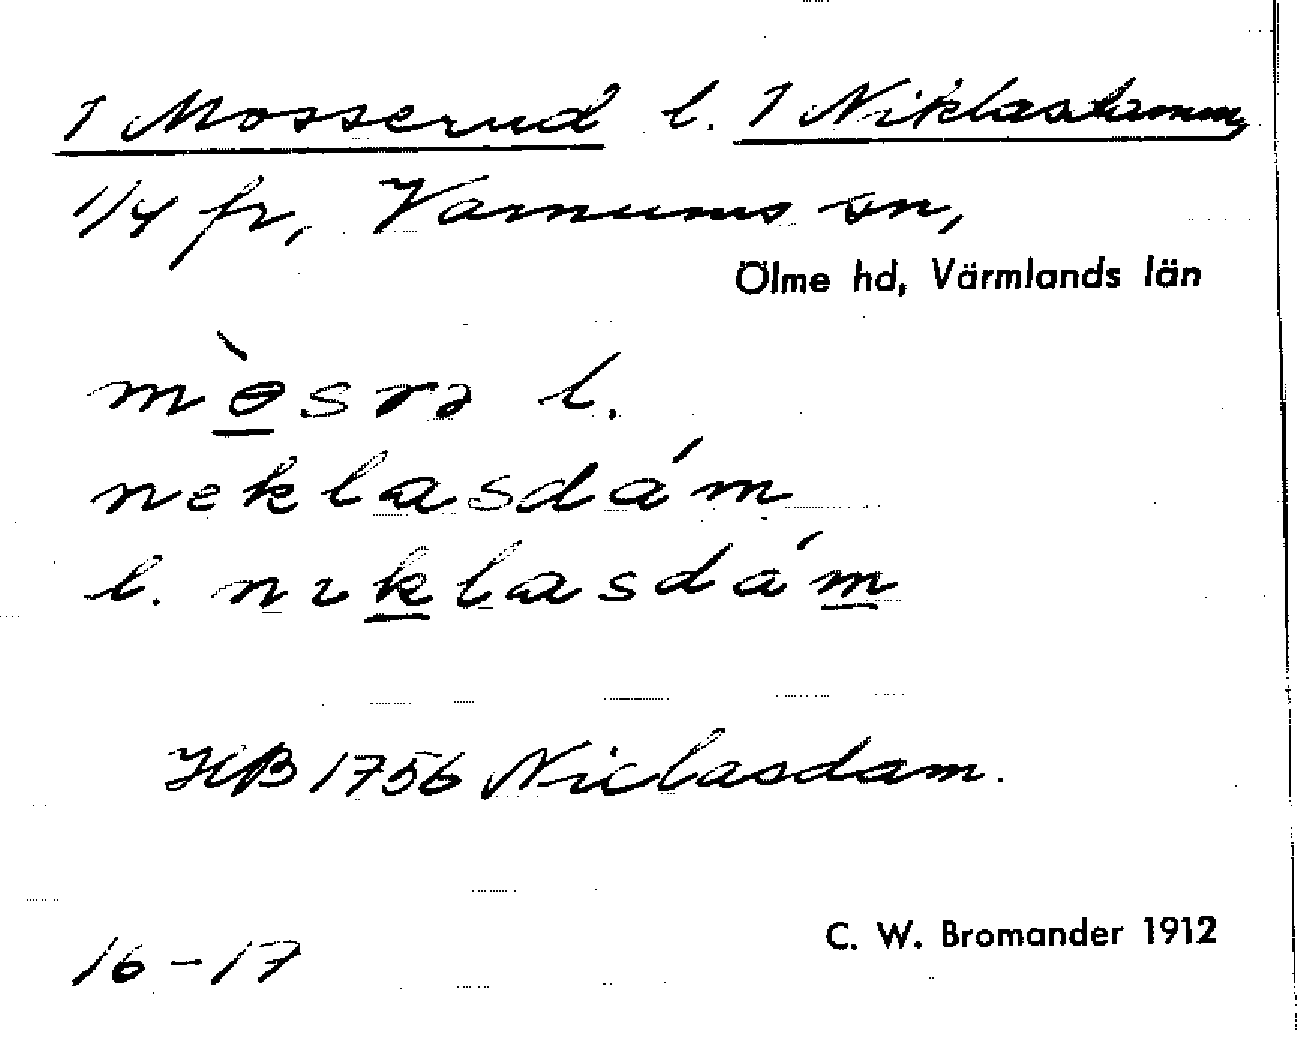 1 Mosserud l. 1 Niklasdamm,
1/4 fr, Varnums sn,
Ölme hd, Värmlands län
mɵ̀srə l.
neklasdám
l. nıklasdám
HB 1756 Niclasdam.
C. W. Bromander 1912
16-17